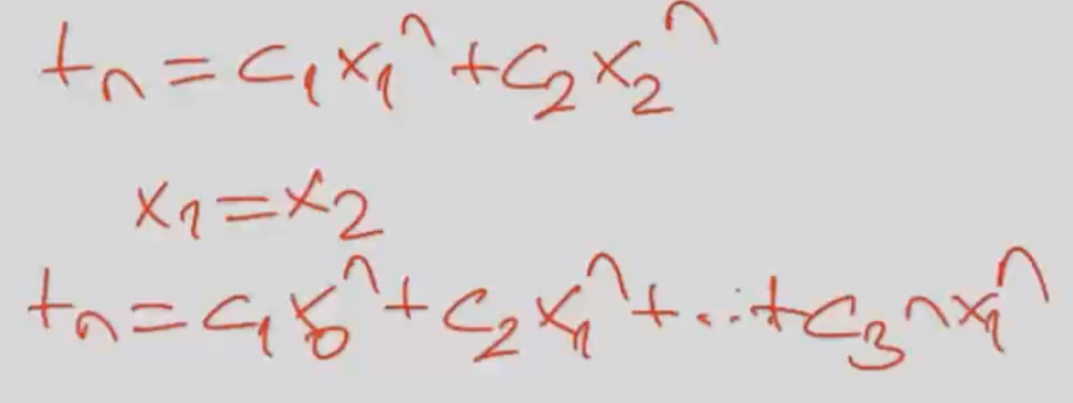 tₙ = c₁x₁ⁿ + c₂x₂ⁿ
x₁ = x₂
tₙ = c₁x₀ⁿ + c₂x₁ⁿ + ... + c₃nx₁ⁿ